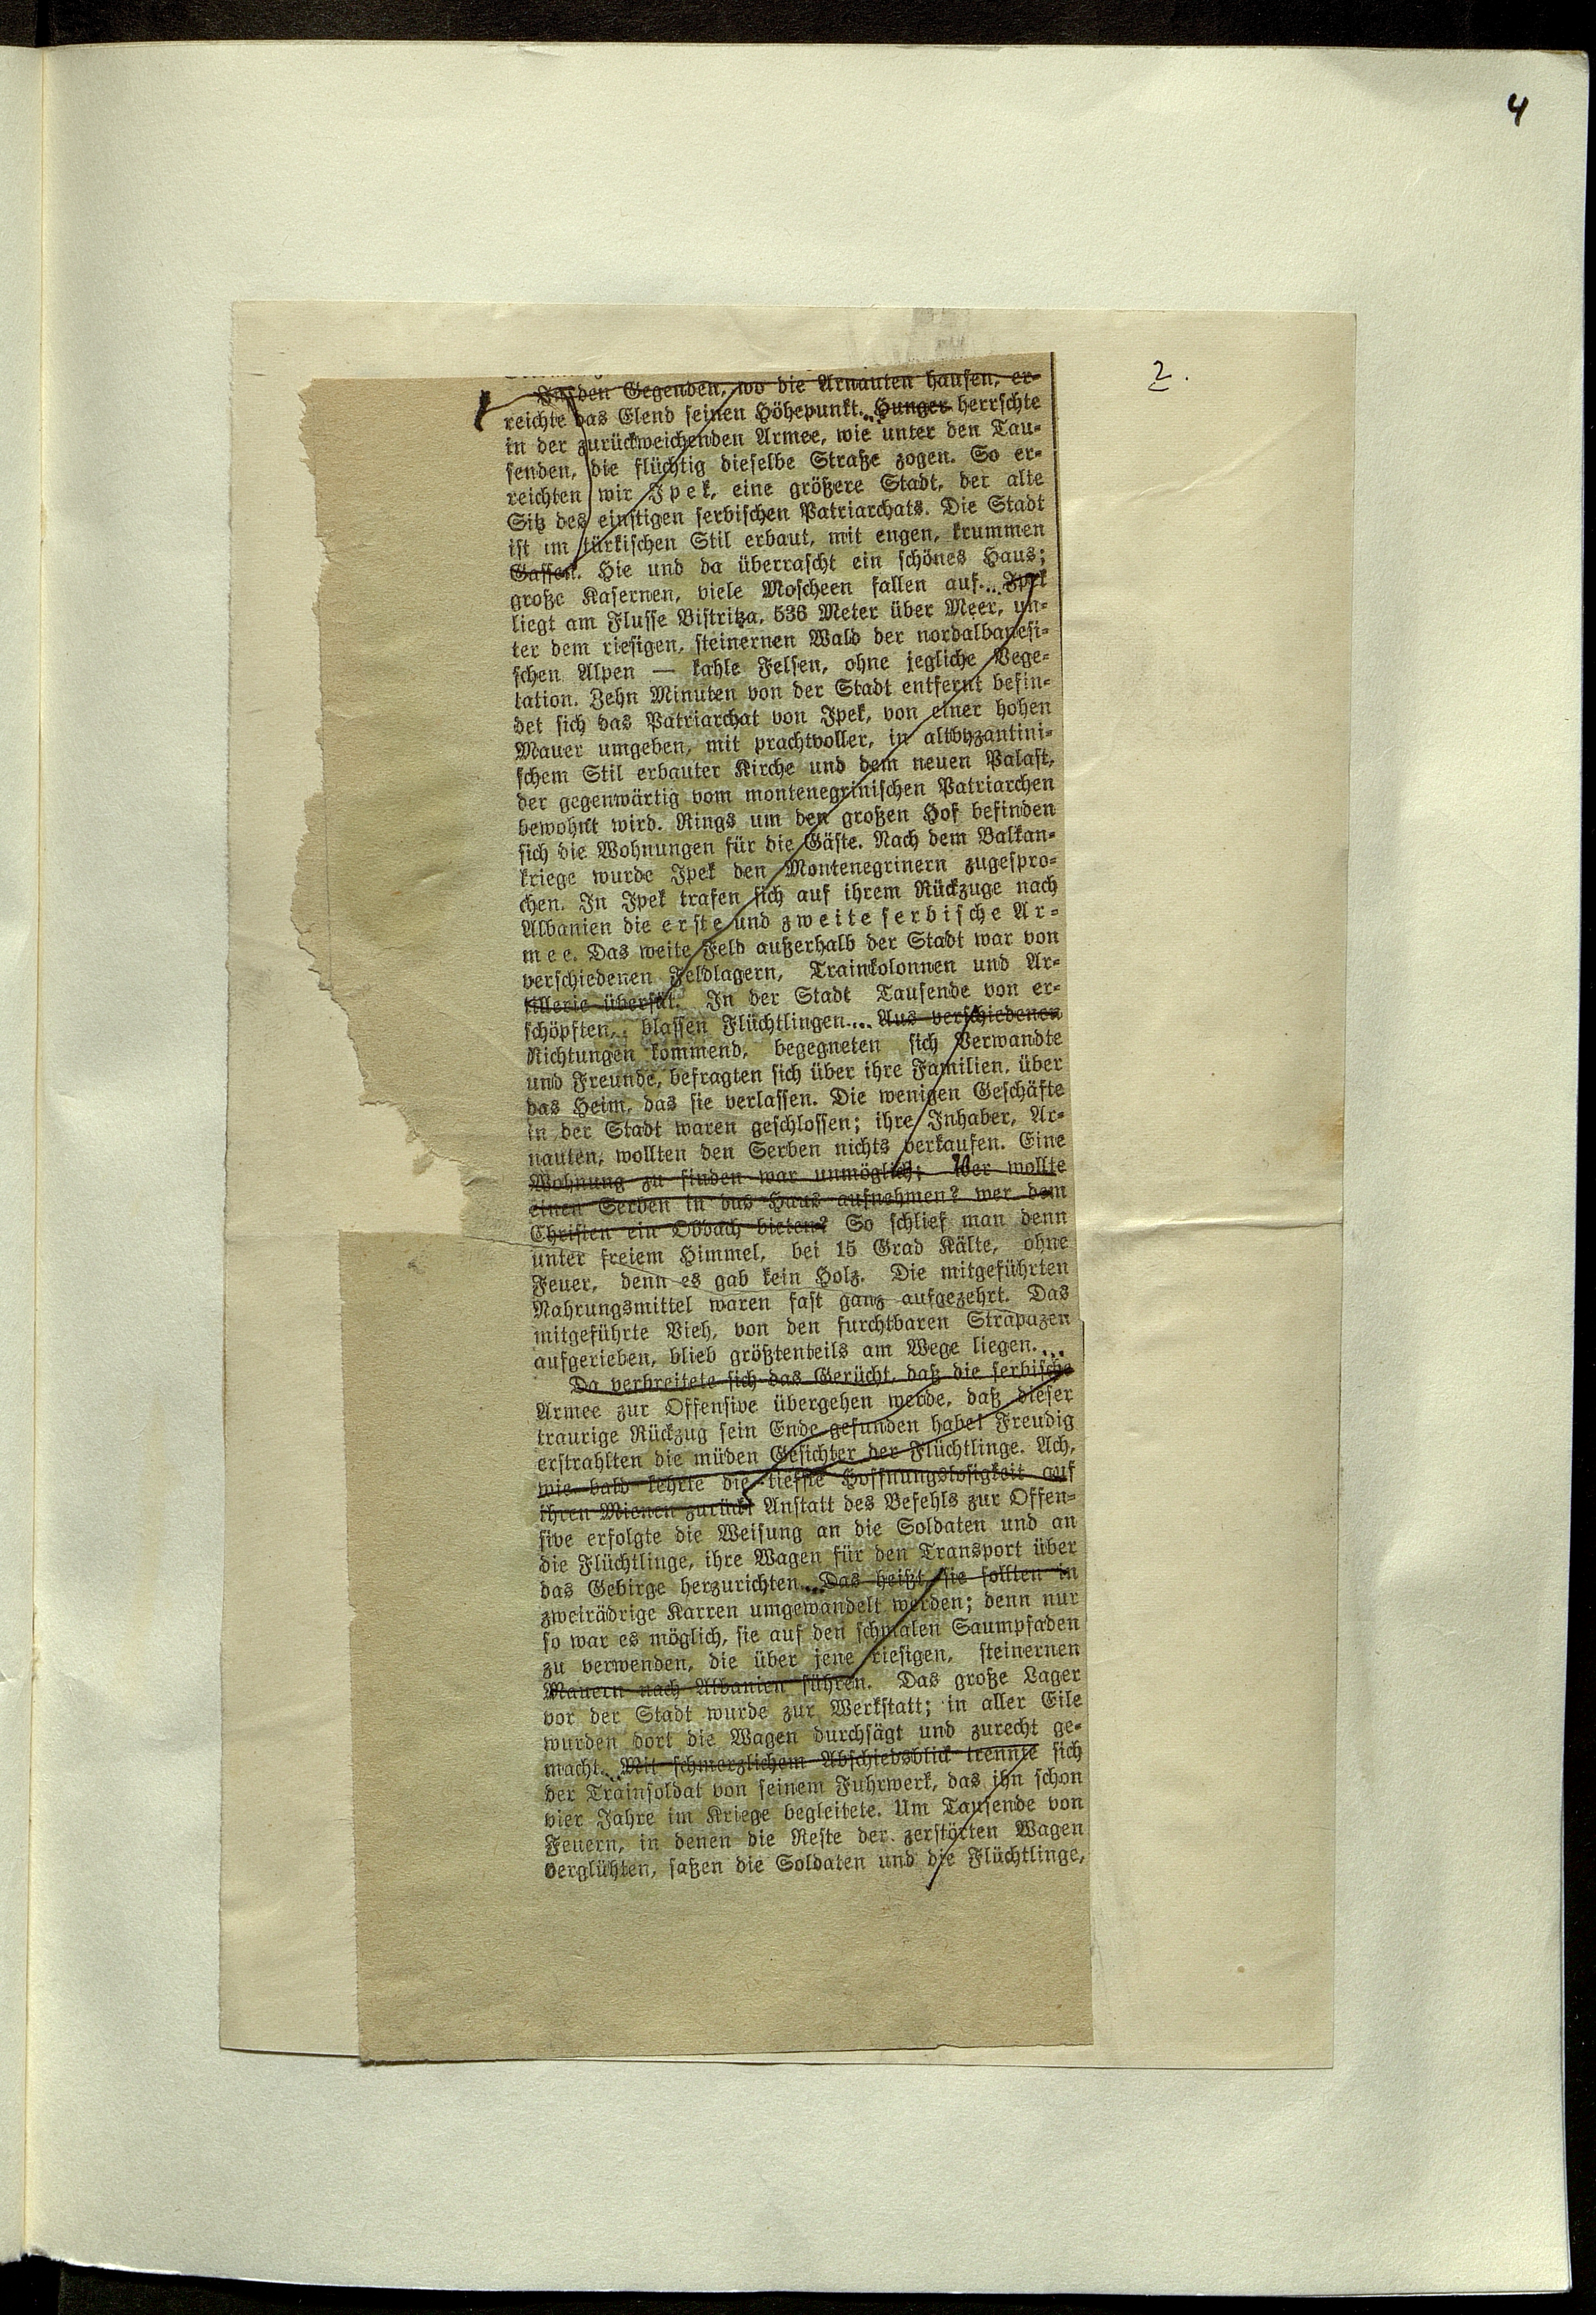 4
2.
In den Gegenden, wo die Arnauten hausen, er-
reichte das Elend seinen Höhepunkt... Hunger herrschte
in der zurückweichenden Armee, wie unter den Tau-
senden, die flüchtig dieselbe Straße zogen. So er-
reichten wir Ipek, eine größere Stadt, der alte
Sitz des einstigen serbischen Patriarchats. Die Stadt
ist im türkischen Stil erbaut, mit engen, krummen
Gassen. Hie und da überrascht ein schönes Haus;
große Kasernen, viele Moscheen fallen auf... Ipek
liegt am Flusse Bistritza, 536 Meter über Meer, un-
ter dem riesigen, steinernen Wald der nordalbanesi-
schen Alpen — kahle Felsen, ohne jegliche Vege-
tation. Zehn Minuten von der Stadt entfernt befin-
det sich das Patriarchat von Ipek, von einer hohen
Mauer umgeben, mit prachtvoller, in altbyzantini-
schem Stil erbauter Kirche und dem neuen Palast,
der gegenwärtig vom montenegrinischen Patriarchen
bewohnt wird. Rings um den großen Hof befinden
sich die Wohnungen für die Gäste. Nach dem Balkan-
kriege wurde Ipek den Montenegrinern zugespro-
chen. In Ipek trafen sich auf ihrem Rückzuge nach
Albanien die erste und zweite serbische Ar-
mee. Das weite Feld außerhalb der Stadt war von
verschiedenen Feldlagern, Trainkolonnen und Ar-
tillerie übersät. In der Stadt Tausende von er-
schöpften, blassen Flüchtlingen.... Aus verschiedenen
Richtungen kommend, begegneten sich Verwandte
und Freunde, befragten sich über ihre Familien, über
das Heim, das sie verlassen. Die wenigen Geschäfte
in der Stadt waren geschlossen; ihre Inhaber, Ar-
nauten, wollten den Serben nichts verkaufen. Eine
Wohnung zu finden war unmöglich; Wer wollte
einen Serben in das Haus aufnehmen? wer dem
Christen ein Obdach bieten? So schlief man denn
unter freiem Himmel, bei 15 Grad Kälte, ohne
Feuer, denn es gab kein Holz. Die mitgeführten
Nahrungsmittel waren fast ganz aufgezehrt. Das
mitgeführte Vieh, von den furchtbaren Strapazen
aufgerieben, blieb größtenteils am Wege liegen....
Da verbreitete sich das Gerücht, daß die serbische
Armee zur Offensive übergehen werde, daß dieser
traurige Rückzug sein Ende gefunden habe! Freudig
erstrahlten die müden Gesichter der Flüchtlinge. Ach,
wie bald kehrte die tiefste Hoffnungslosigkeit auf
ihren Mienen zurück! Anstatt des Befehls zur Offen-
sive erfolgte die Weisung an die Soldaten und an
die Flüchtlinge, ihre Wagen für den Transport über
das Gebirge herzurichten... Das heißt, sie sollten in
zweirädrige Karren umgewandelt werden; denn nur
so war es möglich, sie auf den schmalen Saumpfaden
zu verwenden, die über jene riesigen, steinernen
Mauern nach Albanien führen. Das große Lager
vor der Stadt wurde zur Werkstatt; in aller Eile
wurden dort die Wagen durchsägt und zurecht ge-
macht... Mit schmerzlichem Abschiedsblick trennte sich
der Trainsoldat von seinem Fuhrwerk, das ihn schon
vier Jahre im Kriege begleitete. Um Tausende von
Feuern, in denen die Reste der zerstörten Wagen
verglühten, saßen die Soldaten und die Flüchtlinge,